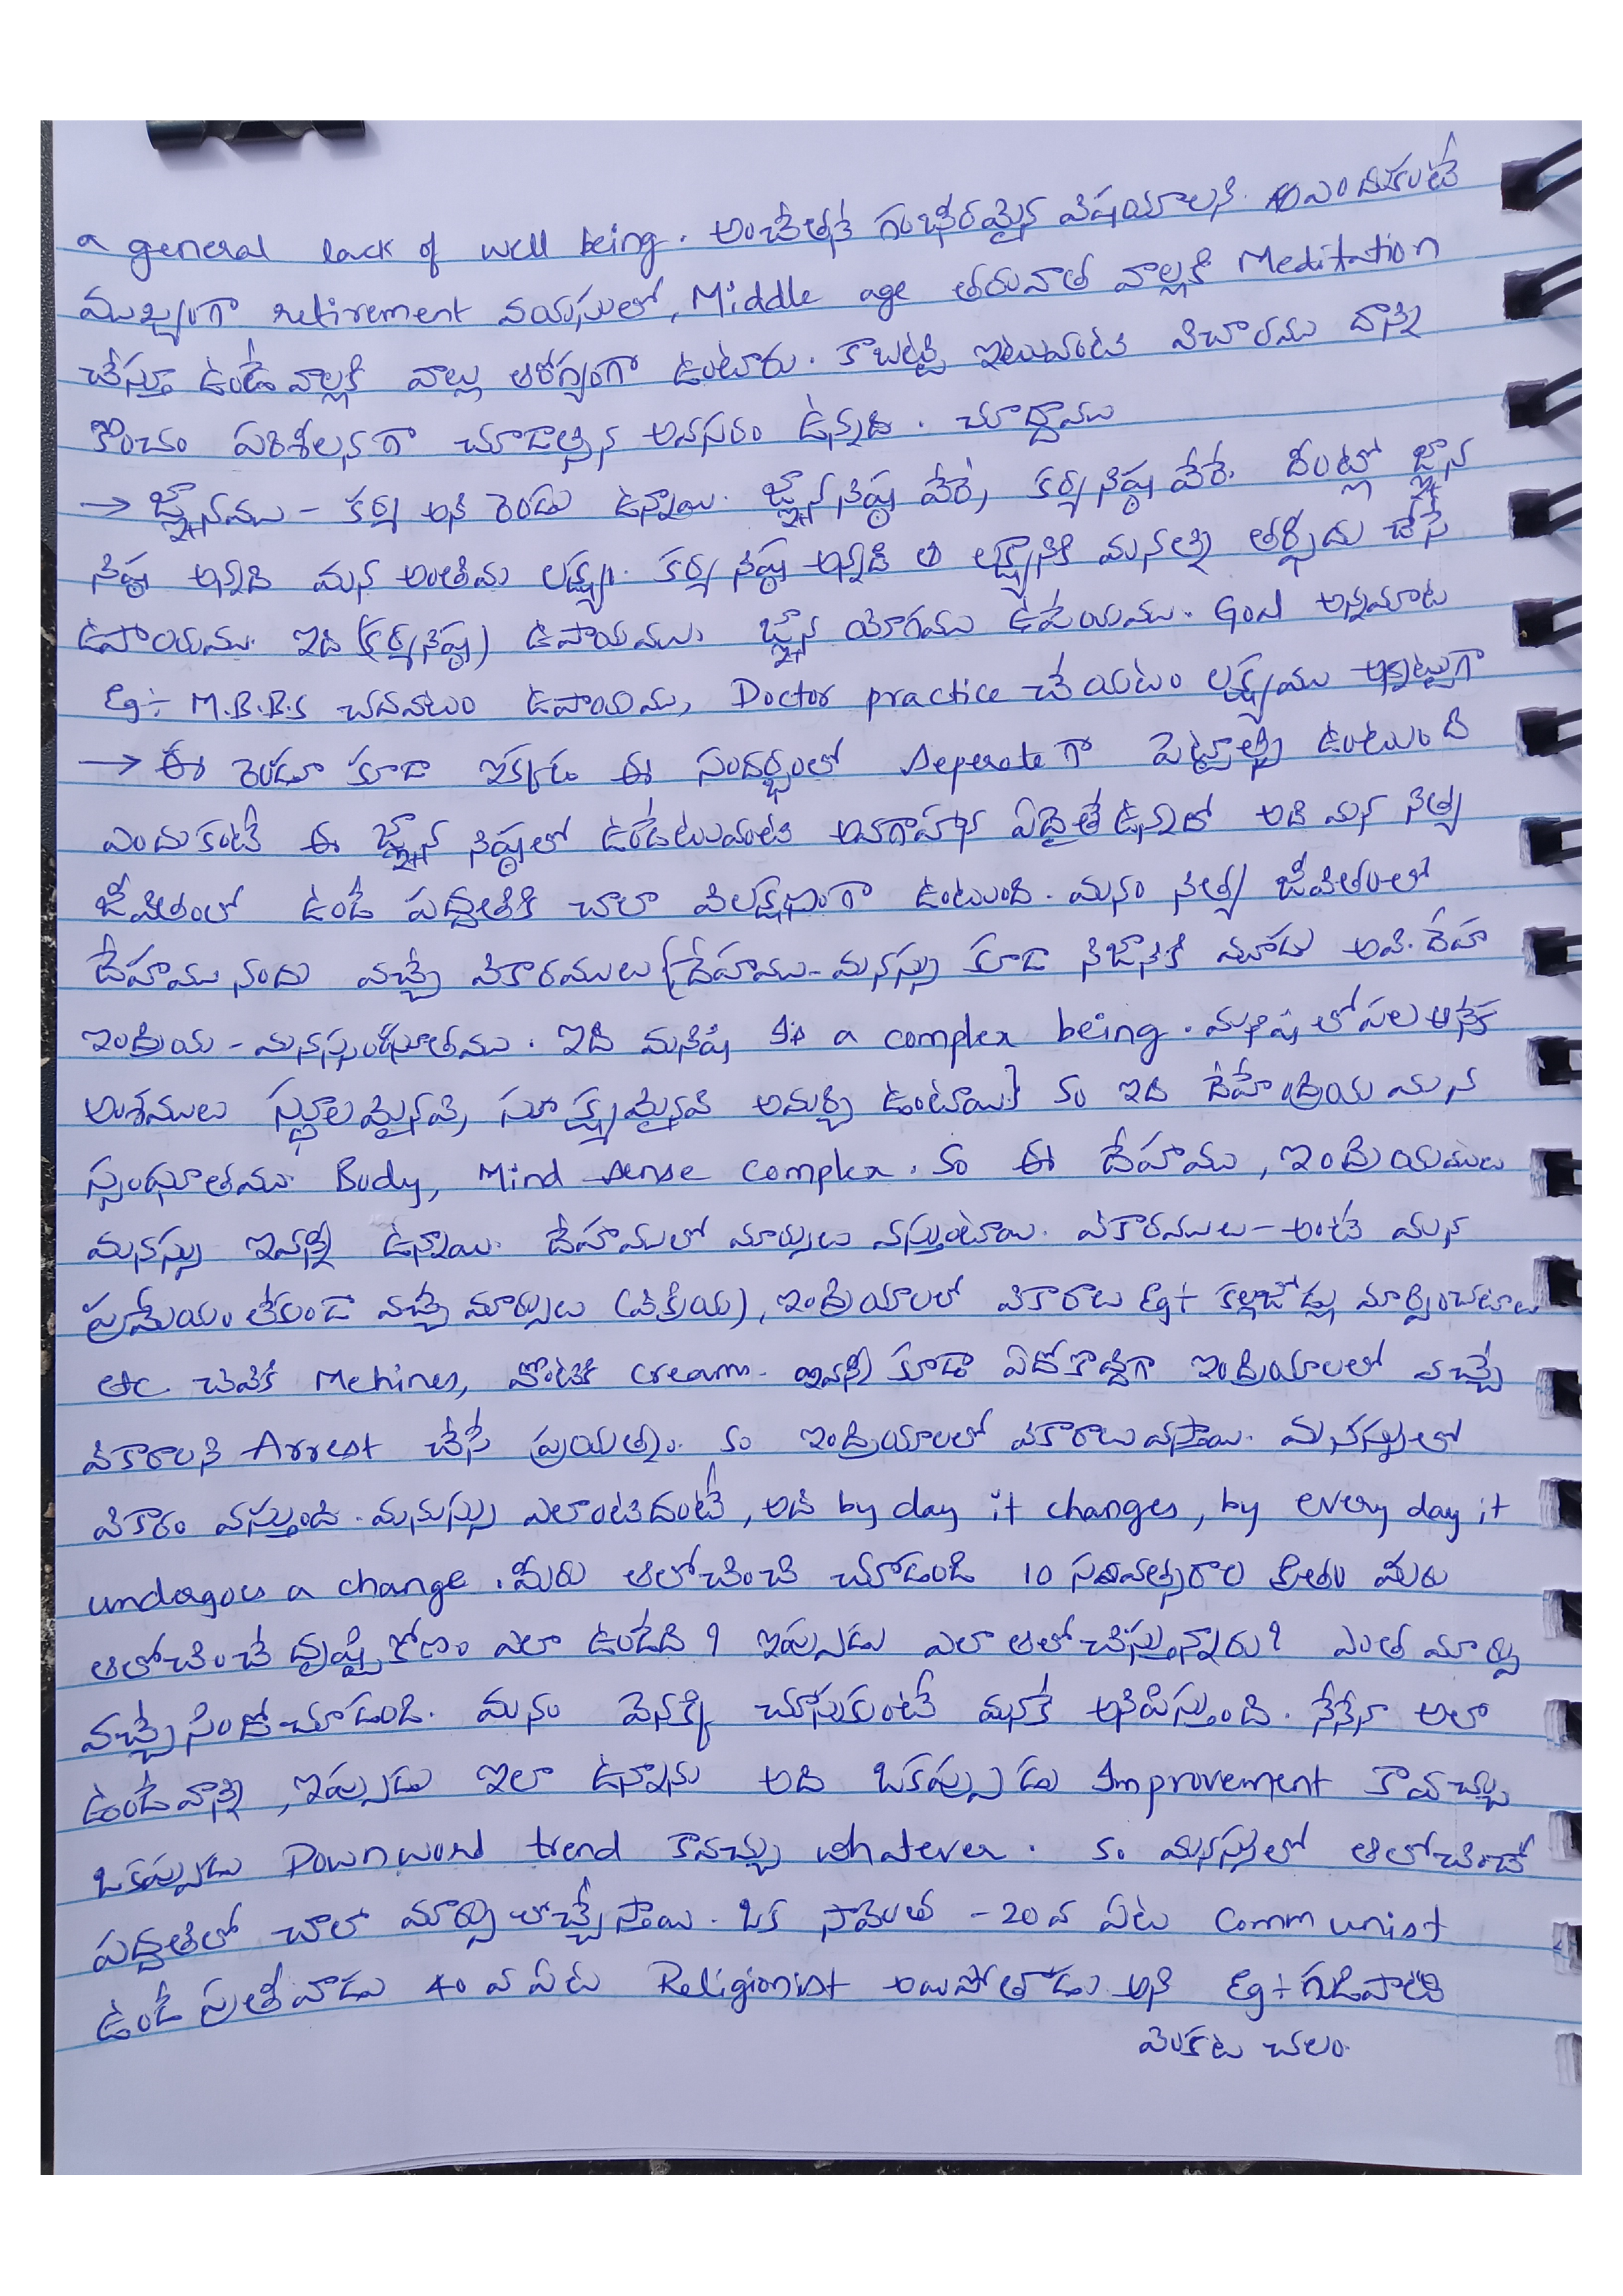 a general lack of well being. అంచేతనే గంభీరమైన విషయాలని. ఎందుకంటే
ముఖ్యంగా retirement వయసులో, Middle age తరువాత వాల్లకి Meditation
చేస్తూ ఉండే వాల్లకి వాల్లు ఆరోగ్యంగా ఉంటారు. కాబట్టి ఇటువంటి విచారము దాన్ని
కొంచం పరిశీలనగా చూడాల్సిన అవసరం ఉన్నది. చూద్దాము
→ జ్ఞానము - కర్మ అని రెండు ఉన్నాయి. జ్ఞాన నిష్ఠ వేరే, కర్మ నిష్ఠ వేరే. దీంట్లో జ్ఞాన
నిష్ఠ అన్నది మన అంతిమ లక్ష్యం. కర్మ నిష్ఠ అన్నది ఆ లక్ష్యానికి మనల్ని తర్ఫీదు చేసే
ఉపాయము. ఇది (కర్మనిష్ఠ) ఉపాయము, జ్ఞాన యోగము ఉపేయము. Goal అన్నమాట
Eg÷ M.B.B.S చదవటం ఉపాయము, Doctor practice చేయటం లక్ష్యము అన్నట్టుగా
→ ఈ రెండూ కూడా ఇక్కడ ఈ సందర్భంలో Seperate గా పెట్టాల్సి ఉంటుంది
ఎందుకంటే ఈ జ్ఞాన నిష్ఠలో ఉండేటువంటి అవగాహన ఏదైతే ఉన్నదో అది మన నిత్య
జీవితంలో ఉండే పద్ధతికి చాలా విలక్షణంగా ఉంటుంది. మనం నిత్య జీవితంలో
దేహము నందు వచ్చే వికారములు {దేహము-మనస్సు కూడా నిజానికి మూడు అవి. దేహ
ఇంద్రియ - మనస్సంఘాతము. ఇది మనిషి Is a complex being. మనిషి లోపల అనేక
అంశములు స్థూలమైనవి, సూక్ష్మమైనవి అమర్చి ఉంటాయి} So ఇది దేహేంద్రియ మన
స్సంఘాతము. Body, Mind sense complex. So ఈ దేహము, ఇంద్రియములు
మనస్సు ఇవన్నీ ఉన్నాయి. దేహములో మార్పులు వస్తుంటాయి. వికారములు - అంటే మన
ప్రమేయం లేకుండా వచ్చే మార్పులు (విక్రియ), ఇంద్రియాలలో వికారాలు Eg÷ కళ్లజోడ్లు మార్పించటాలు
etc. చెవికి Mehines, వొంటికి cream. ఇవన్నీ కూడా ఏదోకొద్దిగా ఇంద్రియాలలో వచ్చే
వికారాలని Arrest చేసే ప్రయత్నం. So ఇంద్రియాలలో వికారాలు వస్తాయి. మనస్సులో
వికారం వస్తుంది. మనుస్సు ఎలాంటిదంటే, అది by day it changes, by every day it
undergoes a change. మీరు ఆలోచించి చూడండి 10 సంవత్సరాల క్రితం మీరు
ఆలోచించే దృష్టి కోణం ఎలా ఉండేది? ఇప్పుడు ఎలా ఆలోచిస్తున్నారు? ఎంత మార్పు
వచ్చేసిందో చూడండి. మనం వెనక్కి చూసుకుంటే మనకే అనిపిస్తుంది. నేనేనా అలా
ఉండేవాన్ని, ఇప్పుడు ఇలా ఉన్నాను అది ఒకప్పుడు Improvement కావచ్చు
ఒకప్పుడు Downword trend కావచ్చు whatever. So మనస్సులో ఆలోచించే
పద్ధతిలో చాలా మార్పులొచ్చేస్తాయి. ఒక సామెత - 20వ ఏట Communist
ఉండే ప్రతీవాడు 40 వ ఏట Religionist అయిపోతాడు అని Eg÷ గుడిపాటి
వెంకట చలం.